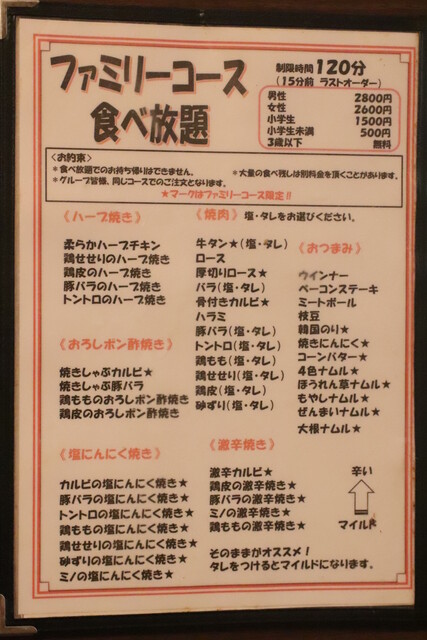 ファミリーコース
食べ放題
制限時間 120分
(15分前 ラストオーダー)
男性 2800円
女性 2600円
小学生 1500円
小学生未満 500円
3歳以下 無料
<お約束>
*食べ放題でのお持ち帰りはできません。 *大量の食べ残しは別料金を頂くことがあります。
*グループ皆様、同じコースでのご注文となります。
★マークはファミリーコース限定!!
《ハーブ焼き》
柔らかハーブチキン
鶏せせりのハーブ焼き
鶏皮のハーブ焼き
豚バラのハーブ焼き
トントロのハーブ焼き
《おろしポン酢焼き》
焼きしゃぶカルビ★
焼きしゃぶ豚バラ
鶏もものおろしポン酢焼き
鶏皮のおろしポン酢焼き
《塩にんにく焼き》
カルビの塩にんにく焼き★
豚バラの塩にんにく焼き★
トントロの塩にんにく焼き★
鶏ももの塩にんにく焼き★
鶏せせりの塩にんにく焼き★
砂ずりの塩にんにく焼き★
ミノの塩にんにく焼き★
《焼肉》 塩・タレをお選びください。
牛タン★(塩・タレ)
ロース
厚切りロース★
バラ(塩・タレ)
骨付きカルビ★
ハラミ
豚バラ(塩・タレ)
トントロ(塩・タレ)
鶏もも(塩・タレ)
鶏せせり(塩・タレ)
鶏皮(塩・タレ)
砂ずり(塩・タレ)
《おつまみ》
ウインナー
ベーコンステーキ
ミートボール
枝豆
韓国のり★
焼きにんにく★
コーンバター★
4色ナムル★
ほうれん草ナムル★
もやしナムル★
ぜんまいナムル★
大根ナムル★
《激辛焼き》
激辛カルビ★
鶏皮の激辛焼き★
豚バラの激辛焼き★
ミノの激辛焼き★
鶏ももの激辛焼き★
辛い
マイルド
そのままがオススメ!
タレをつけるとマイルドになります。